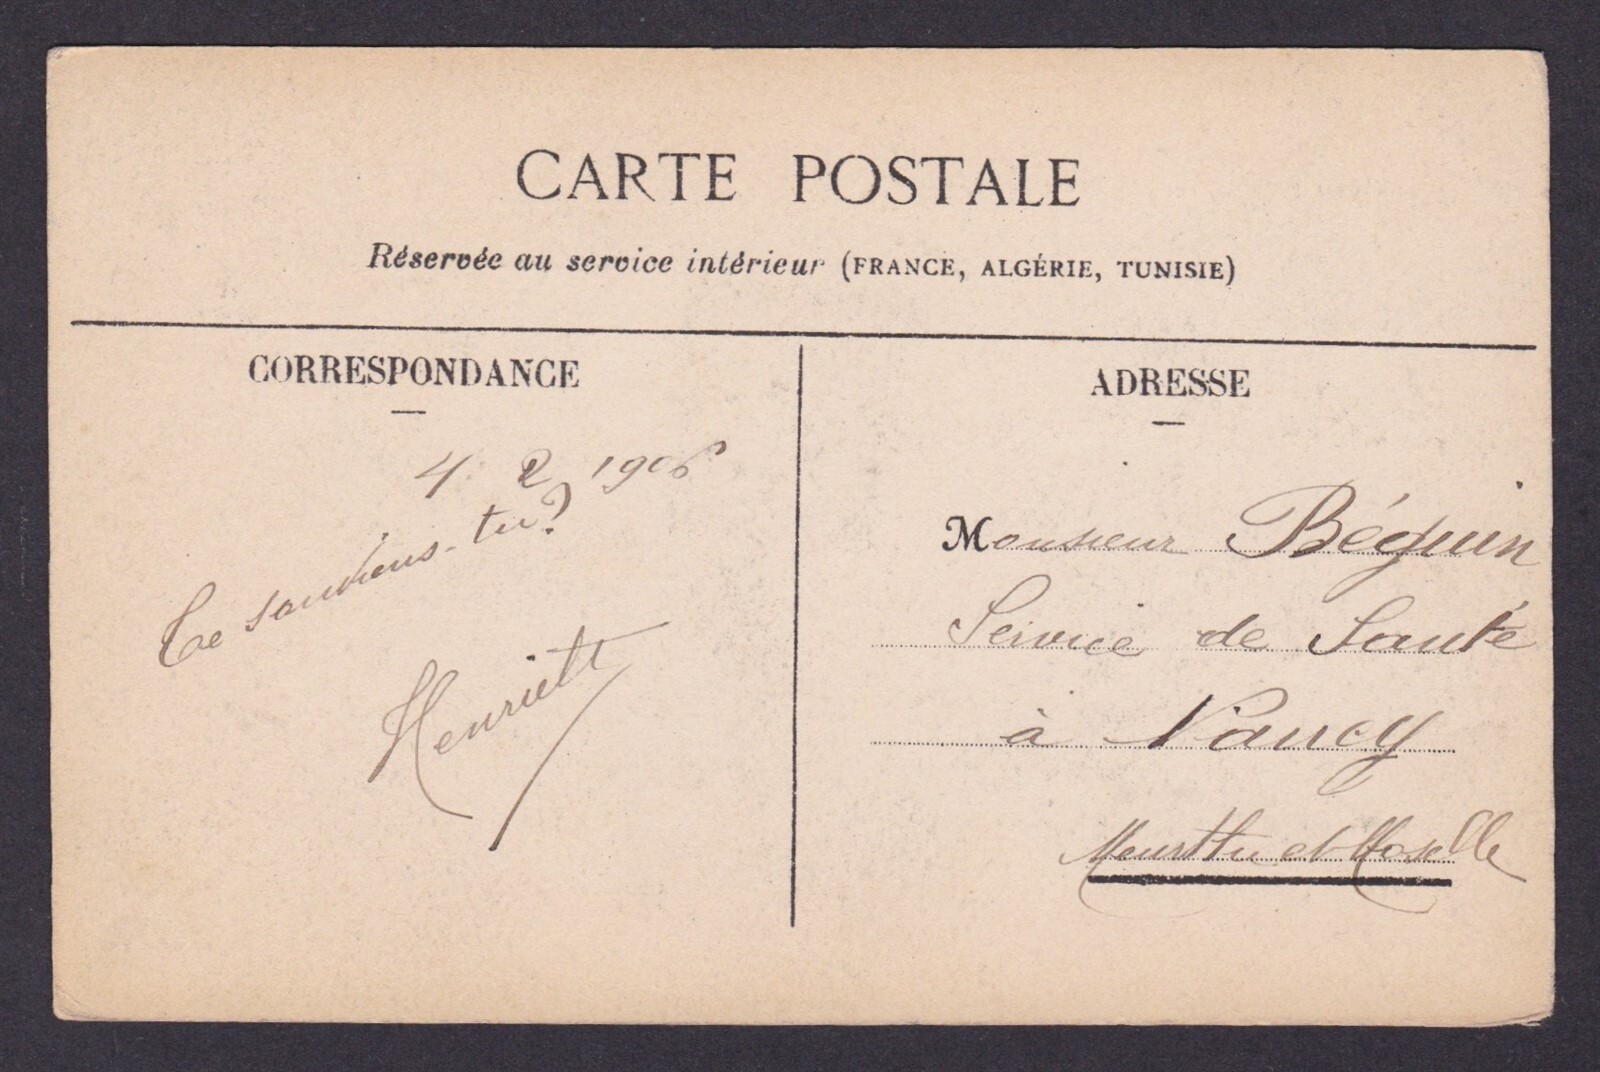 CARTE POSTALE
Réservée au service intérieur (FRANCE, ALGÉRIE, TUNISIE)
CORRESPONDANCE
4 2 1906
Te souviens-tu?
Henriette
ADRESSE
Monsieur Béguin
Service de Santé
à Nancy
Meurthe et Moselle